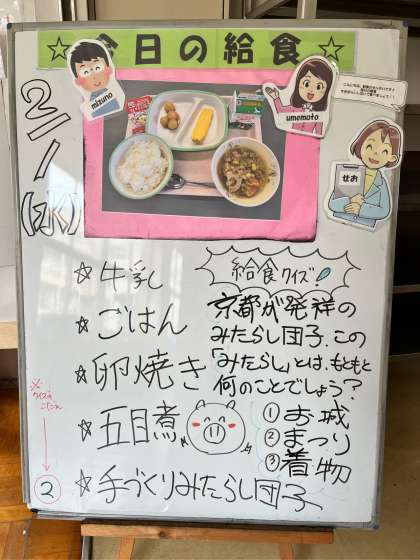 ☆今日の給食☆
mizuno
umemoto
せお
2/1(水)
☆牛乳
☆ごはん
☆卵焼き
☆五目煮
☆手づくりみたらし団子
給食クイズ!
京都が発祥の
みたらし団子、この
「みたらし」とは、もともと
何のことでしょう?
①お城
②まつり
③着物
※クイズの
こたえ
②